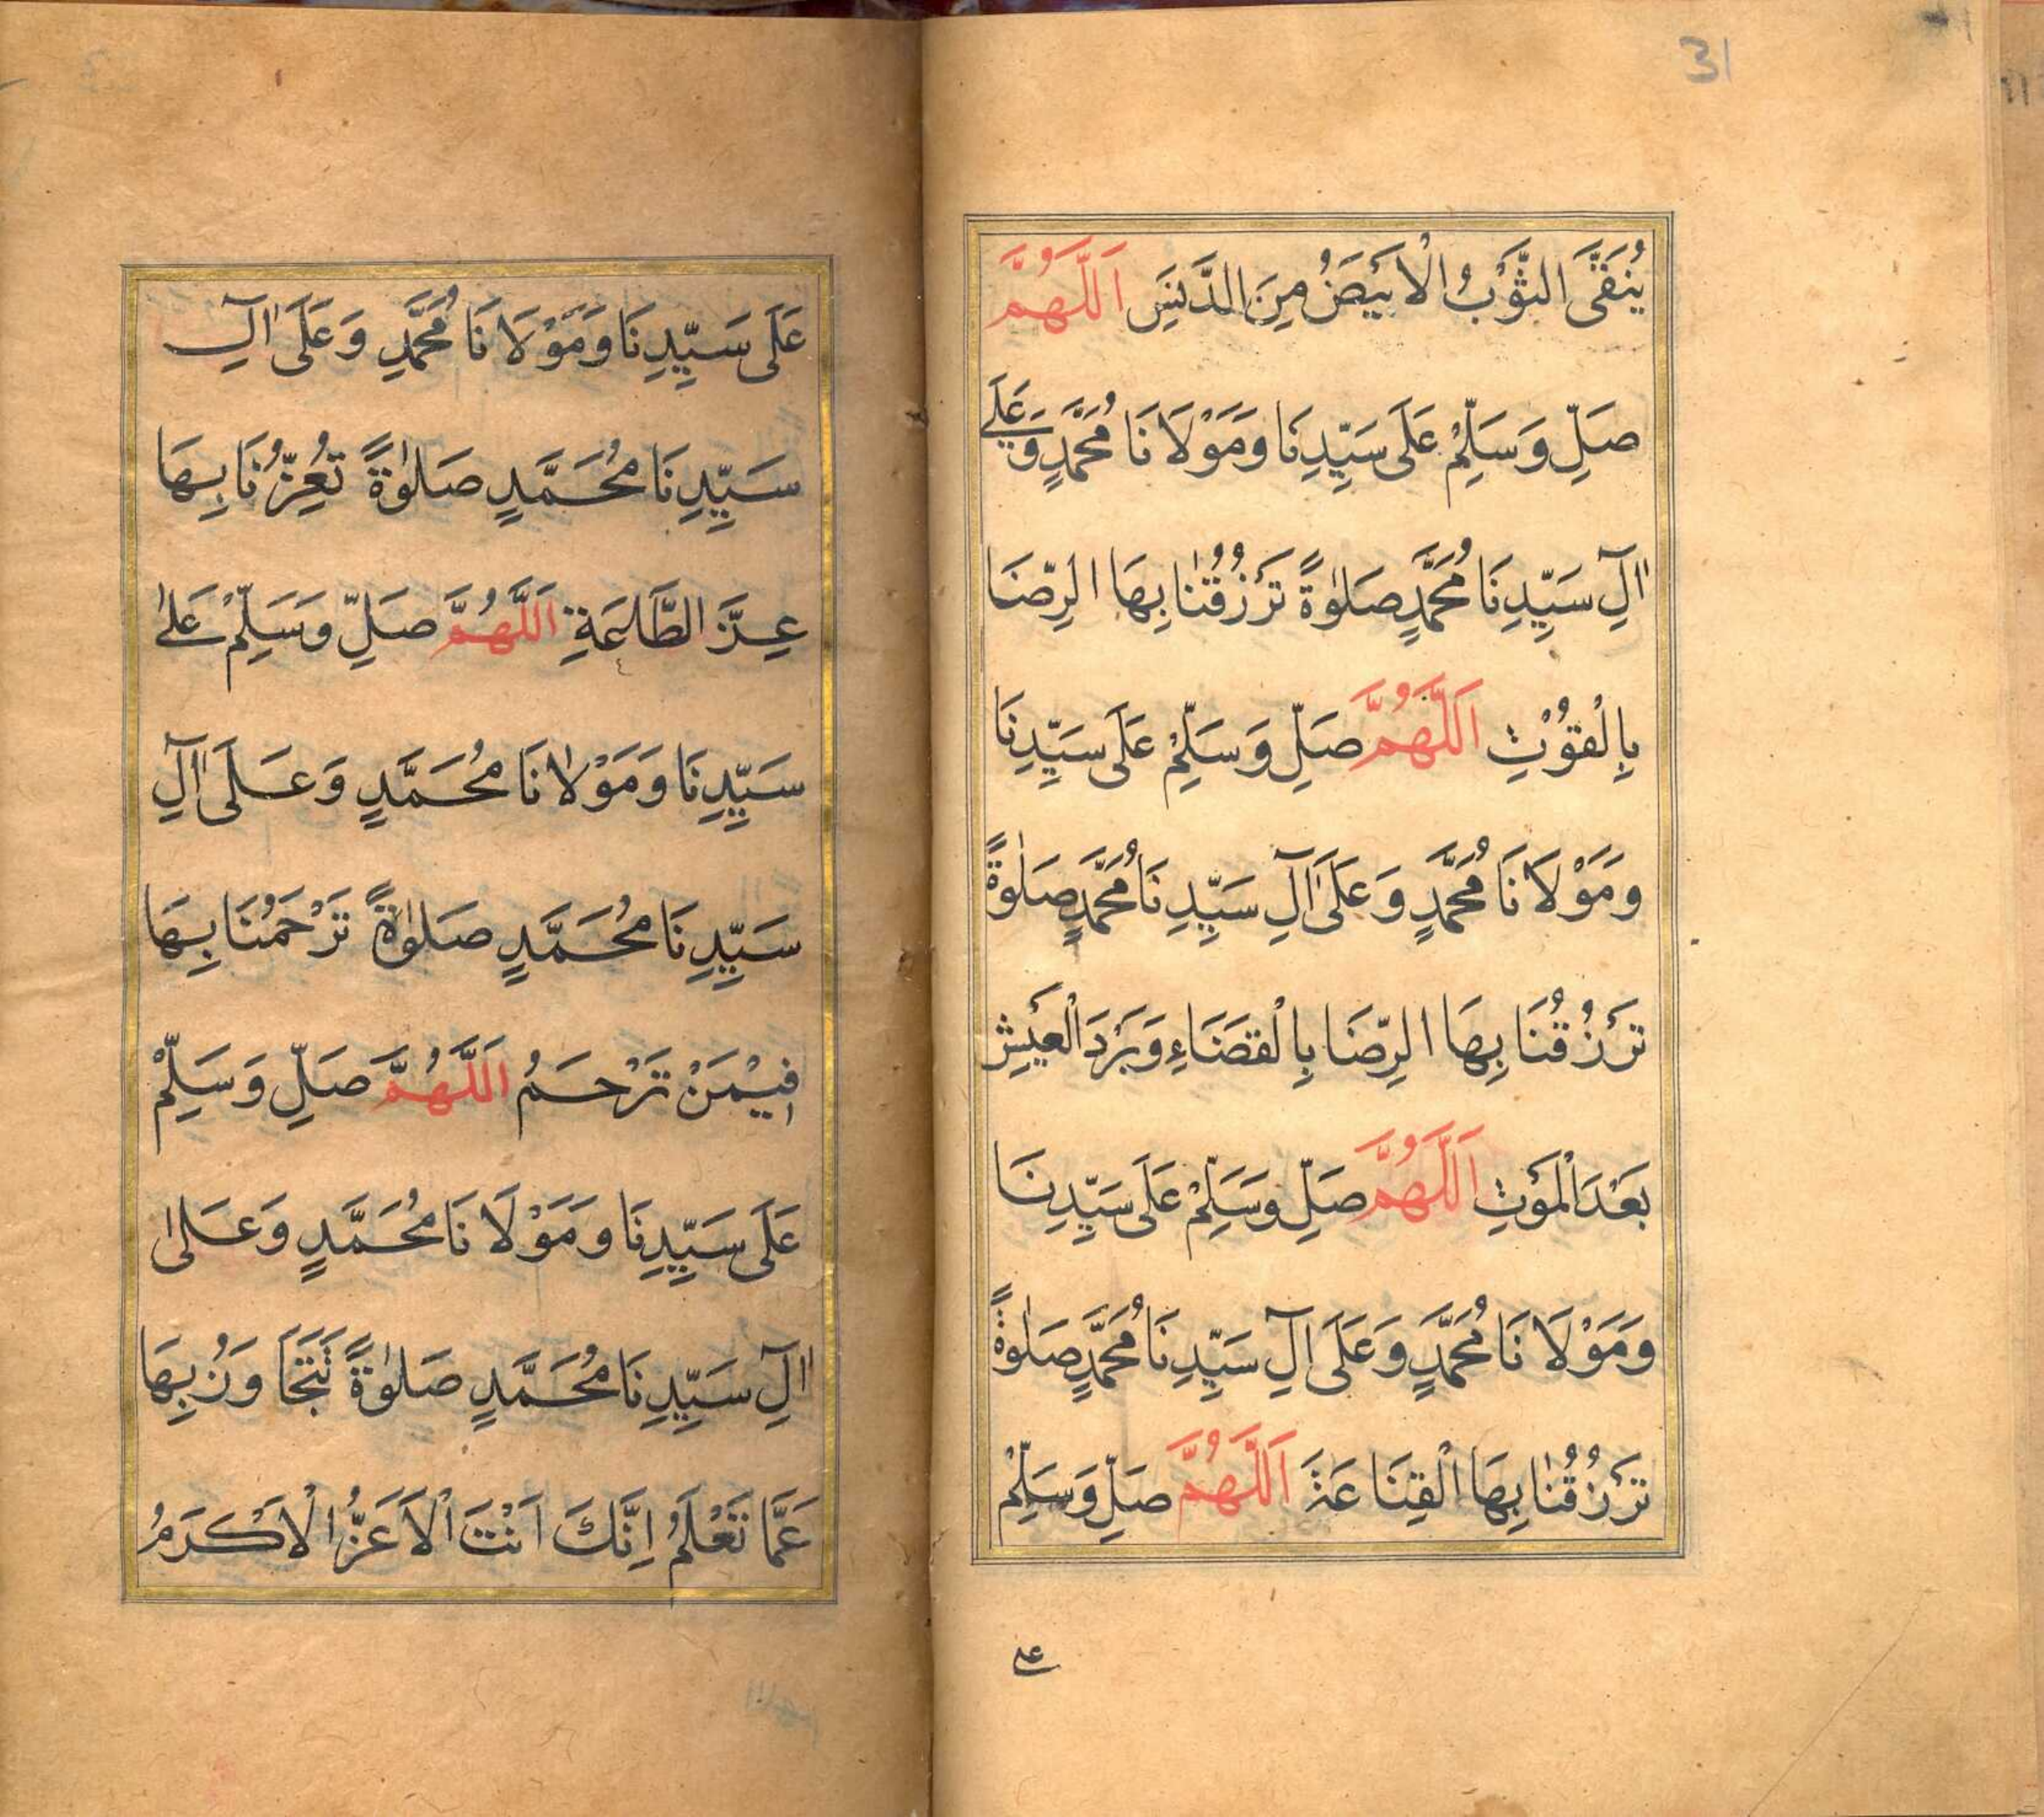 31
يُنَقَّى الثَّوْبُ الْاَبْيَضُ مِنَ الدَّنَسِ اَللَّهُمَّ
صَلِّ وَسَلِّمْ عَلَى سَيِّدِنَا وَمَوْلَانَا مُحَمَّدٍ وَعَلَى
اٰلِ سَيِّدِنَا مُحَمَّدٍ صَلٰوةً تَرْزُقُنَا بِهَا الرِّضَا
بِالْقُوْتِ اَللَّهُمَّ صَلِّ وَسَلِّمْ عَلَى سَيِّدِنَا
وَمَوْلَانَا مُحَمَّدٍ وَعَلَى اٰلِ سَيِّدِنَا مُحَمَّدٍ صَلٰوةً
تَرْزُقُنَا بِهَا الرِّضَا بِالْقَضَاءِ وَبَرْدَ الْعَيْشِ
بَعْدَ الْمَوْتِ اَللَّهُمَّ صَلِّ وَسَلِّمْ عَلَى سَيِّدِنَا
وَمَوْلَانَا مُحَمَّدٍ وَعَلَى اٰلِ سَيِّدِنَا مُحَمَّدٍ صَلٰوةً
تَرْزُقُنَا بِهَا الْقِنَاعَةَ اَللَّهُمَّ صَلِّ وَسَلِّمْ
على
عَلَى سَيِّدِنَا وَمَوْلَانَا مُحَمَّدٍ وَعَلَى اٰلِ
سَيِّدِنَا مُحَمَّدٍ صَلٰوةً تُعِزُّنَا بِهَا
عِزَّ الطَّاعَةِ اَللَّهُمَّ صَلِّ وَسَلِّمْ عَلٰى
سَيِّدِنَا وَمَوْلَانَا مُحَمَّدٍ وَعَلَى اٰلِ
سَيِّدِنَا مُحَمَّدٍ صَلٰوةً تَرْحَمُنَا بِهَا
فِيْمَنْ تَرْحَمُ اَللَّهُمَّ صَلِّ وَسَلِّمْ
عَلَى سَيِّدِنَا وَمَوْلَانَا مُحَمَّدٍ وَعَلٰى
اٰلِ سَيِّدِنَا مُحَمَّدٍ صَلٰوةً تَتَجَاوَزُ بِهَا
عَمَّا تَعْلَمُ اِنَّكَ اَنْتَ الْاَعَزُّ الْاَكْرَمُ